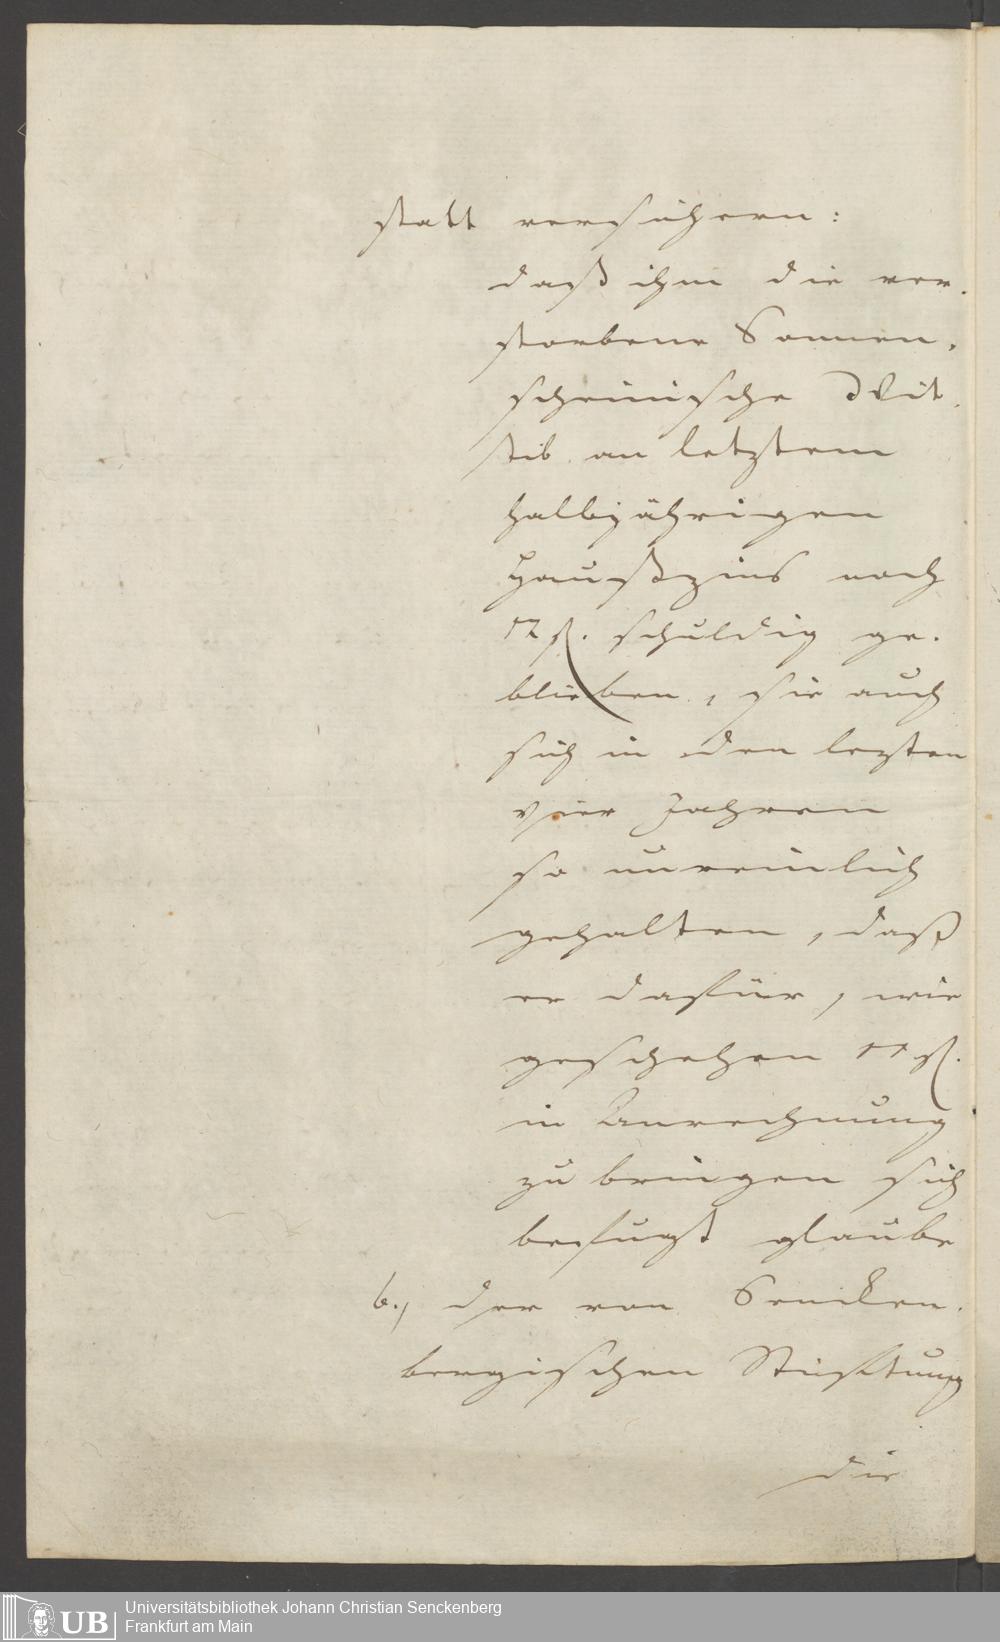 statt versichern:
daß ihm die ver-
storbene Sonnen-
scheinische Wit-
tib an letztem
halbjährigen
Haußzins noch
12 fl. schuldig ge-
blieben, sie auch
sich in den lezten
vier Jahren
so unreinlich
gehalten, daß
er dafür, wie
geschehen 11 fl.
in Anrechnung
zu bringen sich
befugt glaube
b., der von Sencken-
bergischen Stiftung
die
UB Universitätsbibliothek Johann Christian Senckenberg
Frankfurt am Main